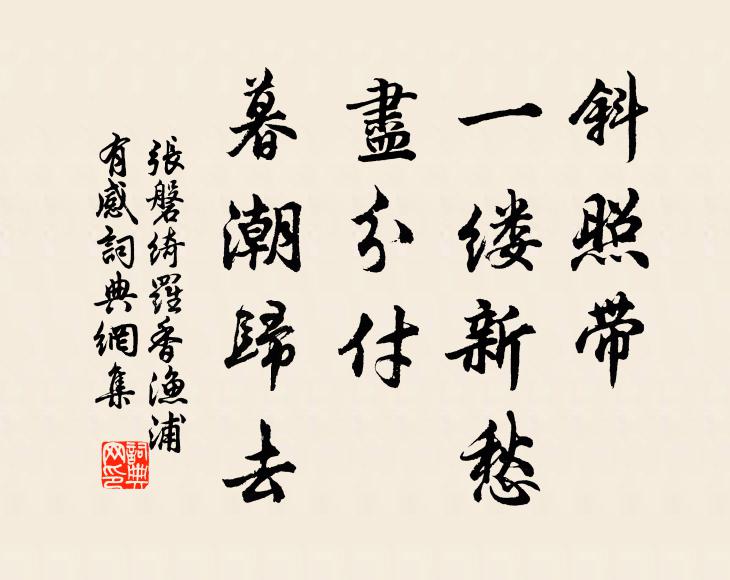 斜照带
一缕新愁
盡分付
暮潮歸去
張磐綺羅香漁浦
有感詞典網集
詞典
网印